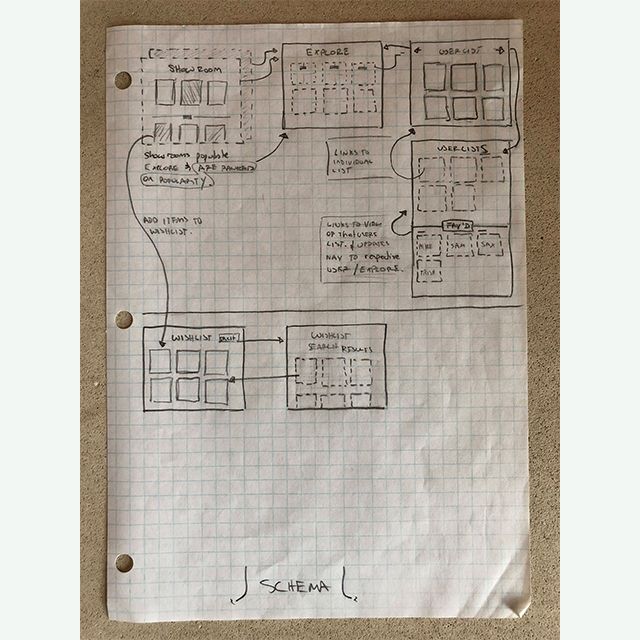 SHOWROOM
EXPLORE
USERLIST
Showrooms populate
EXPLORE & ARE RANKED
ON POPULARITY.
LINKS TO
INDIVIDUAL
LIST
USERLISTS
FAV'D
MIKE
SAM
ADD ITEMS TO
WISHLIST.
LINKS TO VIEW
OF that USERS
LIST. & UPDATES
NAV TO respective
USER/EXPLORE.
WISHLIST
WISHLIST
SEARCH RESULTS
SCHEMA